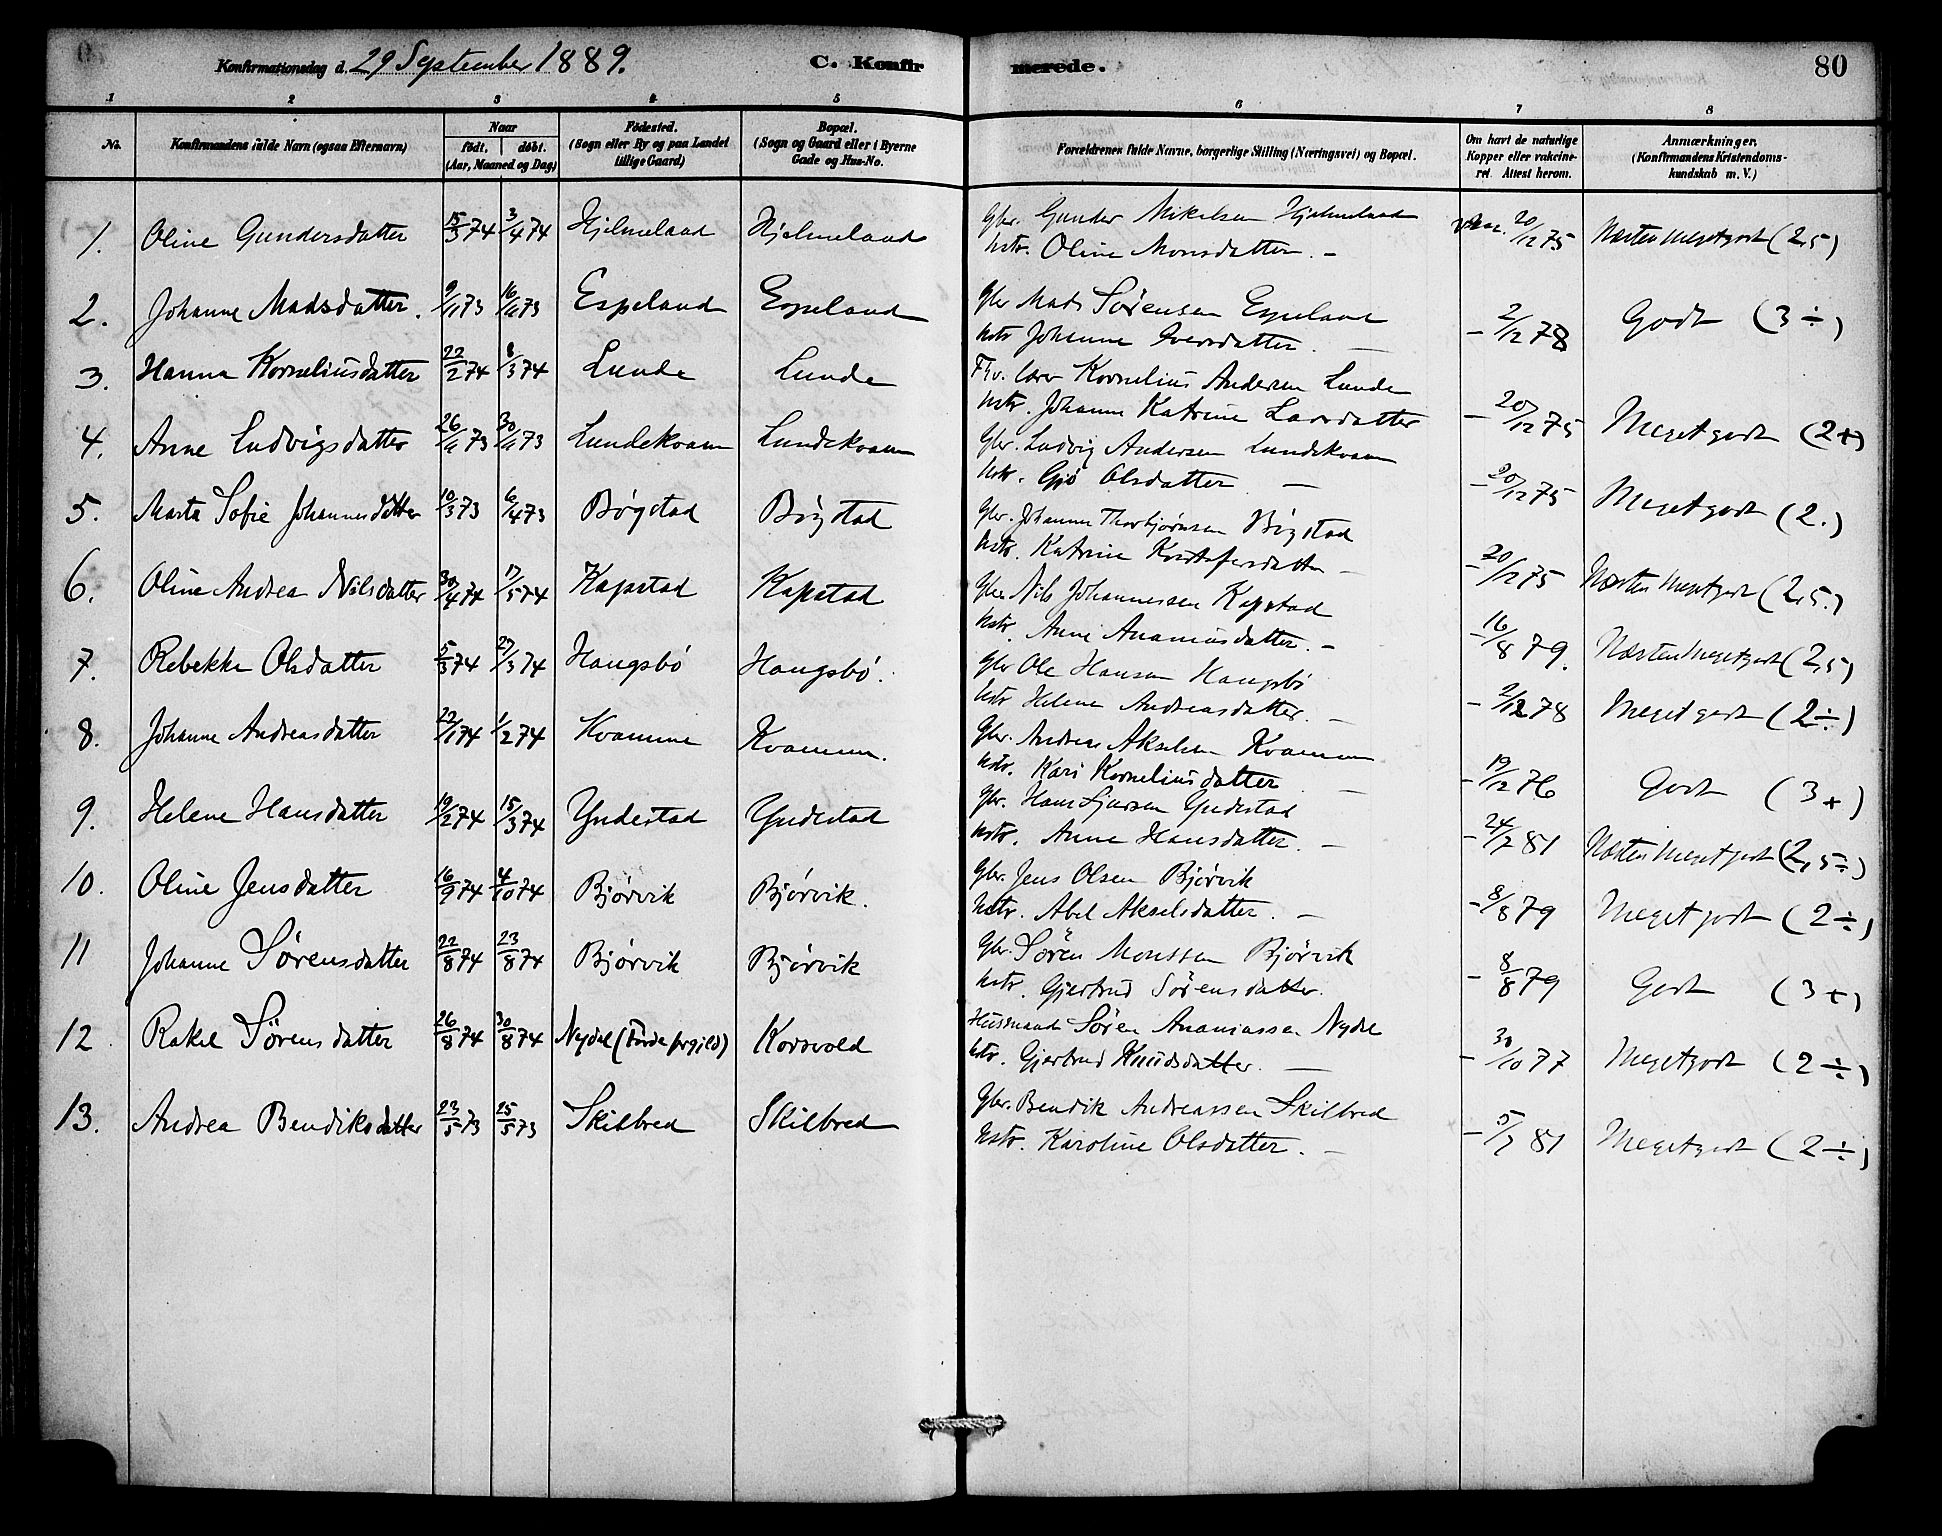 Konfirmationsdag d. 29 September 1889. C. Konfirmerede. 80
1 2 3 4 5 6 7 8
No. Konfirmandens fulde Navn (ogsaa Efternavn) Naar født. døbt. (Aar, Maaned og Dag) Fødested. (Sogn eller By og paa Landet tillige Gaard) Bopæl. (Sogn og Gaard eller i Byerne Gade og Hus-No. Forældrenes fulde Navne, borgerlige Stilling (Næringsvei) og Bopæl. Om havt de naturlige Kopper eller vakcineret. Attest herom. Anmærkninger. (Konfirmandens Kristendomskundskab m. V.)
1. Oline Gundersdatter 15/3 74 3/4 74 Hjelmeland Hjelmeland Gbr. Gunder Mikelsen Hjelmeland
Hstr. Oline Monsdatter. – 20/12 75 Næsten Megetgodt (2,5)
2. Johanne Madsdatter. 9/11 73 16/11 73 Espeland Espeland Gbr Mads Sørensen Espeland
Hstr Johanne Iversdatter. — – 2/12 78 Godt (3 ÷)
3. Hanna Korneliusdatter 22/2 74 8/3 74 Lunde Lunde Fhv. lærer Kornelius Andersen Lunde
Hstr. Johanne Katrine Larsdatter – 20/12 75 Megetgodt (2+)
4. Anne Ludvigsdatter 26/11 73 30/11 73 Lundekvam Lundekvam Gbr. Ludvig Andersen Lundekvam
Hstr. Gjø Olsdatter — – 20/12 75 Megetgodt (2.)
5. Marta Sofie Johannesdatter 10/3 73 6/4 73 Bøgstad Bøgstad Gbr. Johannes Thorbjørnsen Bøgstad
Hstr. Katrine Kristofersdatter – – 20/12 75 Næsten Megetgodt (2,5.)
6. Oline Andrea Nilsdatter 30/4 74 17/5 74 Kapstad Kapstad Gbr. Nils Johannessen Kapstad
Hstr. Anne Ananiasdatter. – – 16/8 79. Næsten Megetgodt (2,5)
7. Rebekke Olsdatter 5/3 74 27/3 74 Haugsbø Haugsbø. Gbr Ole Hansen Haugsbø
Hstr Helene Andreasdatter. – – 2/12 78 Megetgodt (2÷)
8. Johanne Andreasdatter 22/1 74 1/2 74 Kvamme Kvamme. Gbr. Andreas Akselsen Kvamme
Hstr. Kari Korneliusdatter – – 19/12 76 Godt (3+)
9. Helene Hansdatter 19/2 74 15/3 74 Yndestad Yndestad Gbr. Hans Yndestad
Hstr. Anne Hansdatter. – – 24/7 81 Næsten Megetgodt (2,5÷)
10. Oline Jensdatter 16/9 74 4/10 74 Bjørvik Bjørvik. Gbr. Jens Olsen Bjørvik
Hstr. Abel Akselsdatter. – – 8/8 79 Megetgodt (2÷)
11 Johanne Sørensdatter 22/8 74 23/8 74 Bjørvik Bjørvik Gbr. Søren Monssen Bjørvik
Hstr. Gjertrud Sørensdatter. – 8/8 79 Godt (3+)
12 Rakel Sørensdatter 26/8 74 30/8 74 Nydal (Førde prgjld) Korsvold Husmand Søren Ananiassen Nydal
Hstr. Gjertrud Knudsdatter. — – 30/10 77 Megetgodt (2÷)
13. Andrea Bendiksdatter 23/5 73 25/5 73 Skilbred Skilbred Gbr. Bendik Andreassen Skilbred
Hstr. Karoline Olsdatter. – – 5/7 81 Megetgodt (2÷)